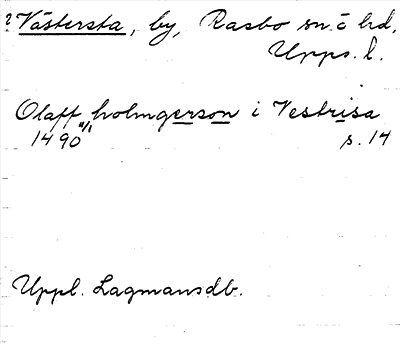 ? Västersta, by, Rasbo sn. o hd,
Upps. l.
Olaff holmgerson i Vestrisa
1490 11/1 s. 14
Uppl. Lagmansdb.